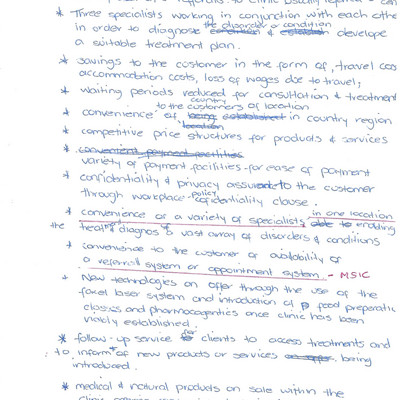 * Three specialists working in conjunction with each othe
the disorder or condition
in order to diagnose & develope
a suitable treatment plan.
* savings to the customer in the form of, travel cos
accommodation costs, loss of wages due to travel;
* waiting periods reduced for consultation & treatment
country
to the customers of location
* convenience of being established in country region
location
* competitive price structures for products & services
* convenient payment facilities
variety of payment facilities - for ease of payment
* confidentiality & privacy to the customer
policy
through workplace - confidentiality clause.
* convenience or a variety of specialists in one location
able to enabling
the & diagnos & vast array of disorders & conditions
* convenience to the customer or availability of
a referral system or appointment system - MSIC
* New technologies on offer through the use of the
facel laser system and introduction of food preparatic
classes and pharmocogentics once clinic has been
viably established.
* follow-up service for clients to access treatments and
to inform of new products or services being
introduced.
* medical & natural products on sale within the